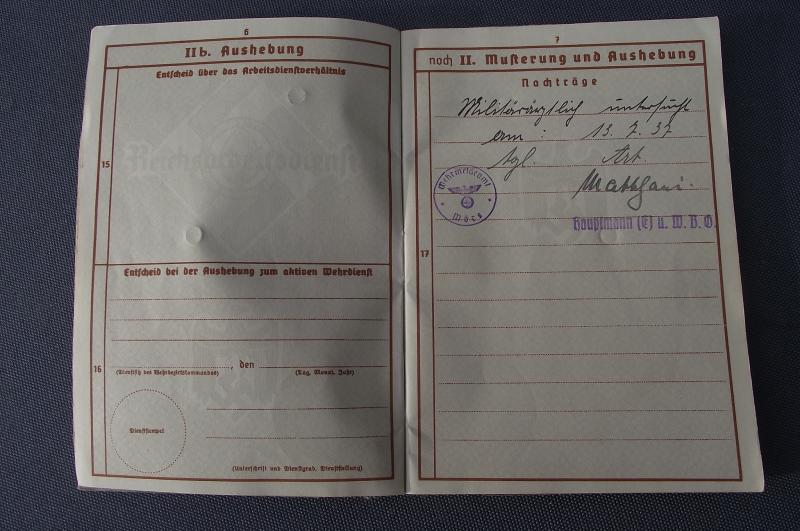 6
II b. Aushebung
Entscheid über das Arbeitsdienstverhältnis
Reichsarbeitsdienst
15
Entscheid bei der Aushebung zum aktiven Wehrdienst
16
, den
(Dienstsitz des Wehrbezirkskommandos) (Tag, Monat, Jahr)
Dienststempel
(Unterschrift und Dienstgrad, Dienststellung)
7
noch II. Musterung und Aushebung
Nachträge
Militärärztlich untersucht
am : 13. 7. 37
tgl. Art.
Wehrmeldeamt
Moers
Hauptmann (E) u. W. B. O.
17